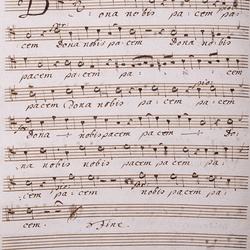 Dona nobis pacem pa=
cem Dona nobis pacem dona nobis
pacem pacem pa=
pacem Dona nobis pacem pa=
Dona nobis pacem pacem do=
na nobis nobis pacem pa=
cem pacem nobis pacem pa=
cem. Fine.